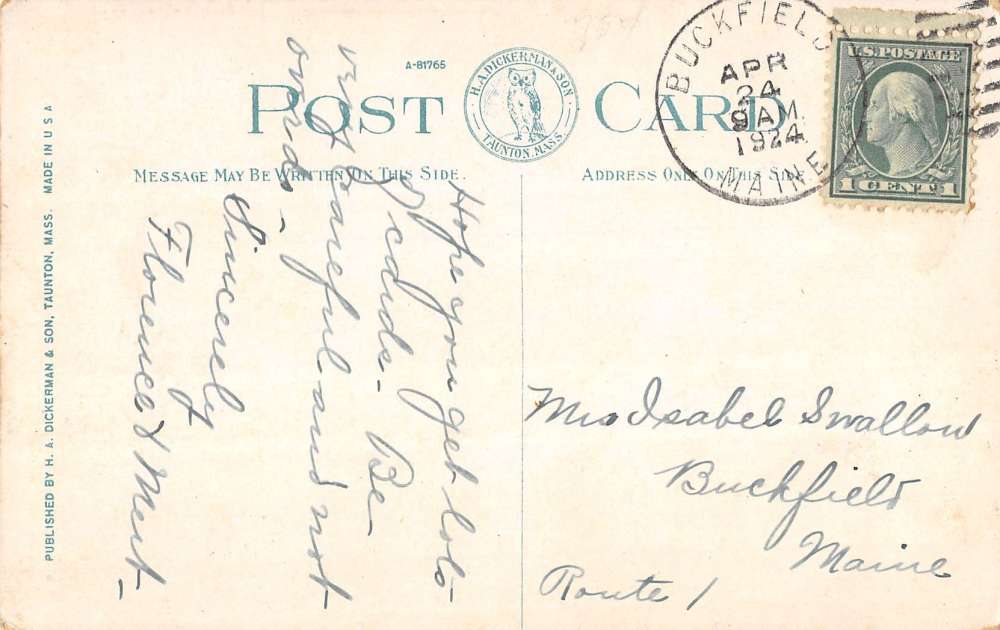 A-81765
POST CARD
H. A. DICKERMAN & SON.
TAUNTON, MASS.
MESSAGE MAY BE WRITTEN ON THIS SIDE.
ADDRESS ONLY ON THIS SIDE
BUCKFIELD
APR
24
9 AM
1924
MAINE
U.S. POSTAGE
1 CENT 1
PUBLISHED BY H. A. DICKERMAN & SON, TAUNTON, MASS. MADE IN U S A
Hope you get lots
of cards - Be
very careful and not
overdo -
Sincerely
Florence & Mert -
Mrs Isabel Swallow
Buckfield
Maine
Route 1